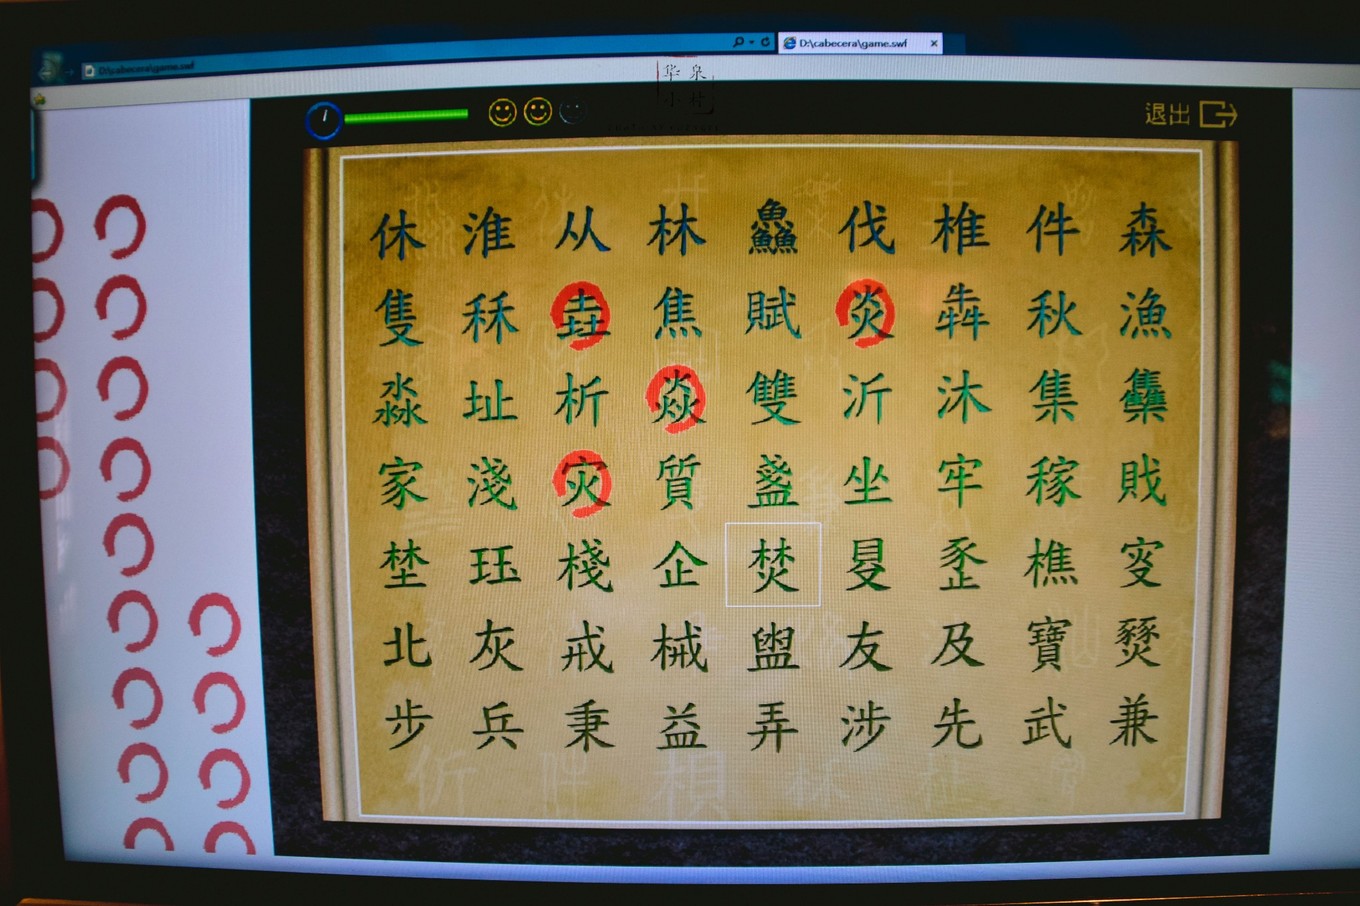 D:\cabecera\game.swf
D:\cabecera\game.swf
华泉
小村
退出
休淮从林鱻伐椎件森
隻秝壵焦賦炎犇秋漁
淼址析焱雙沂沐集雧
家淺灾質盞坐牢稼戝
埜玨棧企焚旻豖樵叜
北灰戒械盥友及寶燹
步兵秉益弄涉先武兼